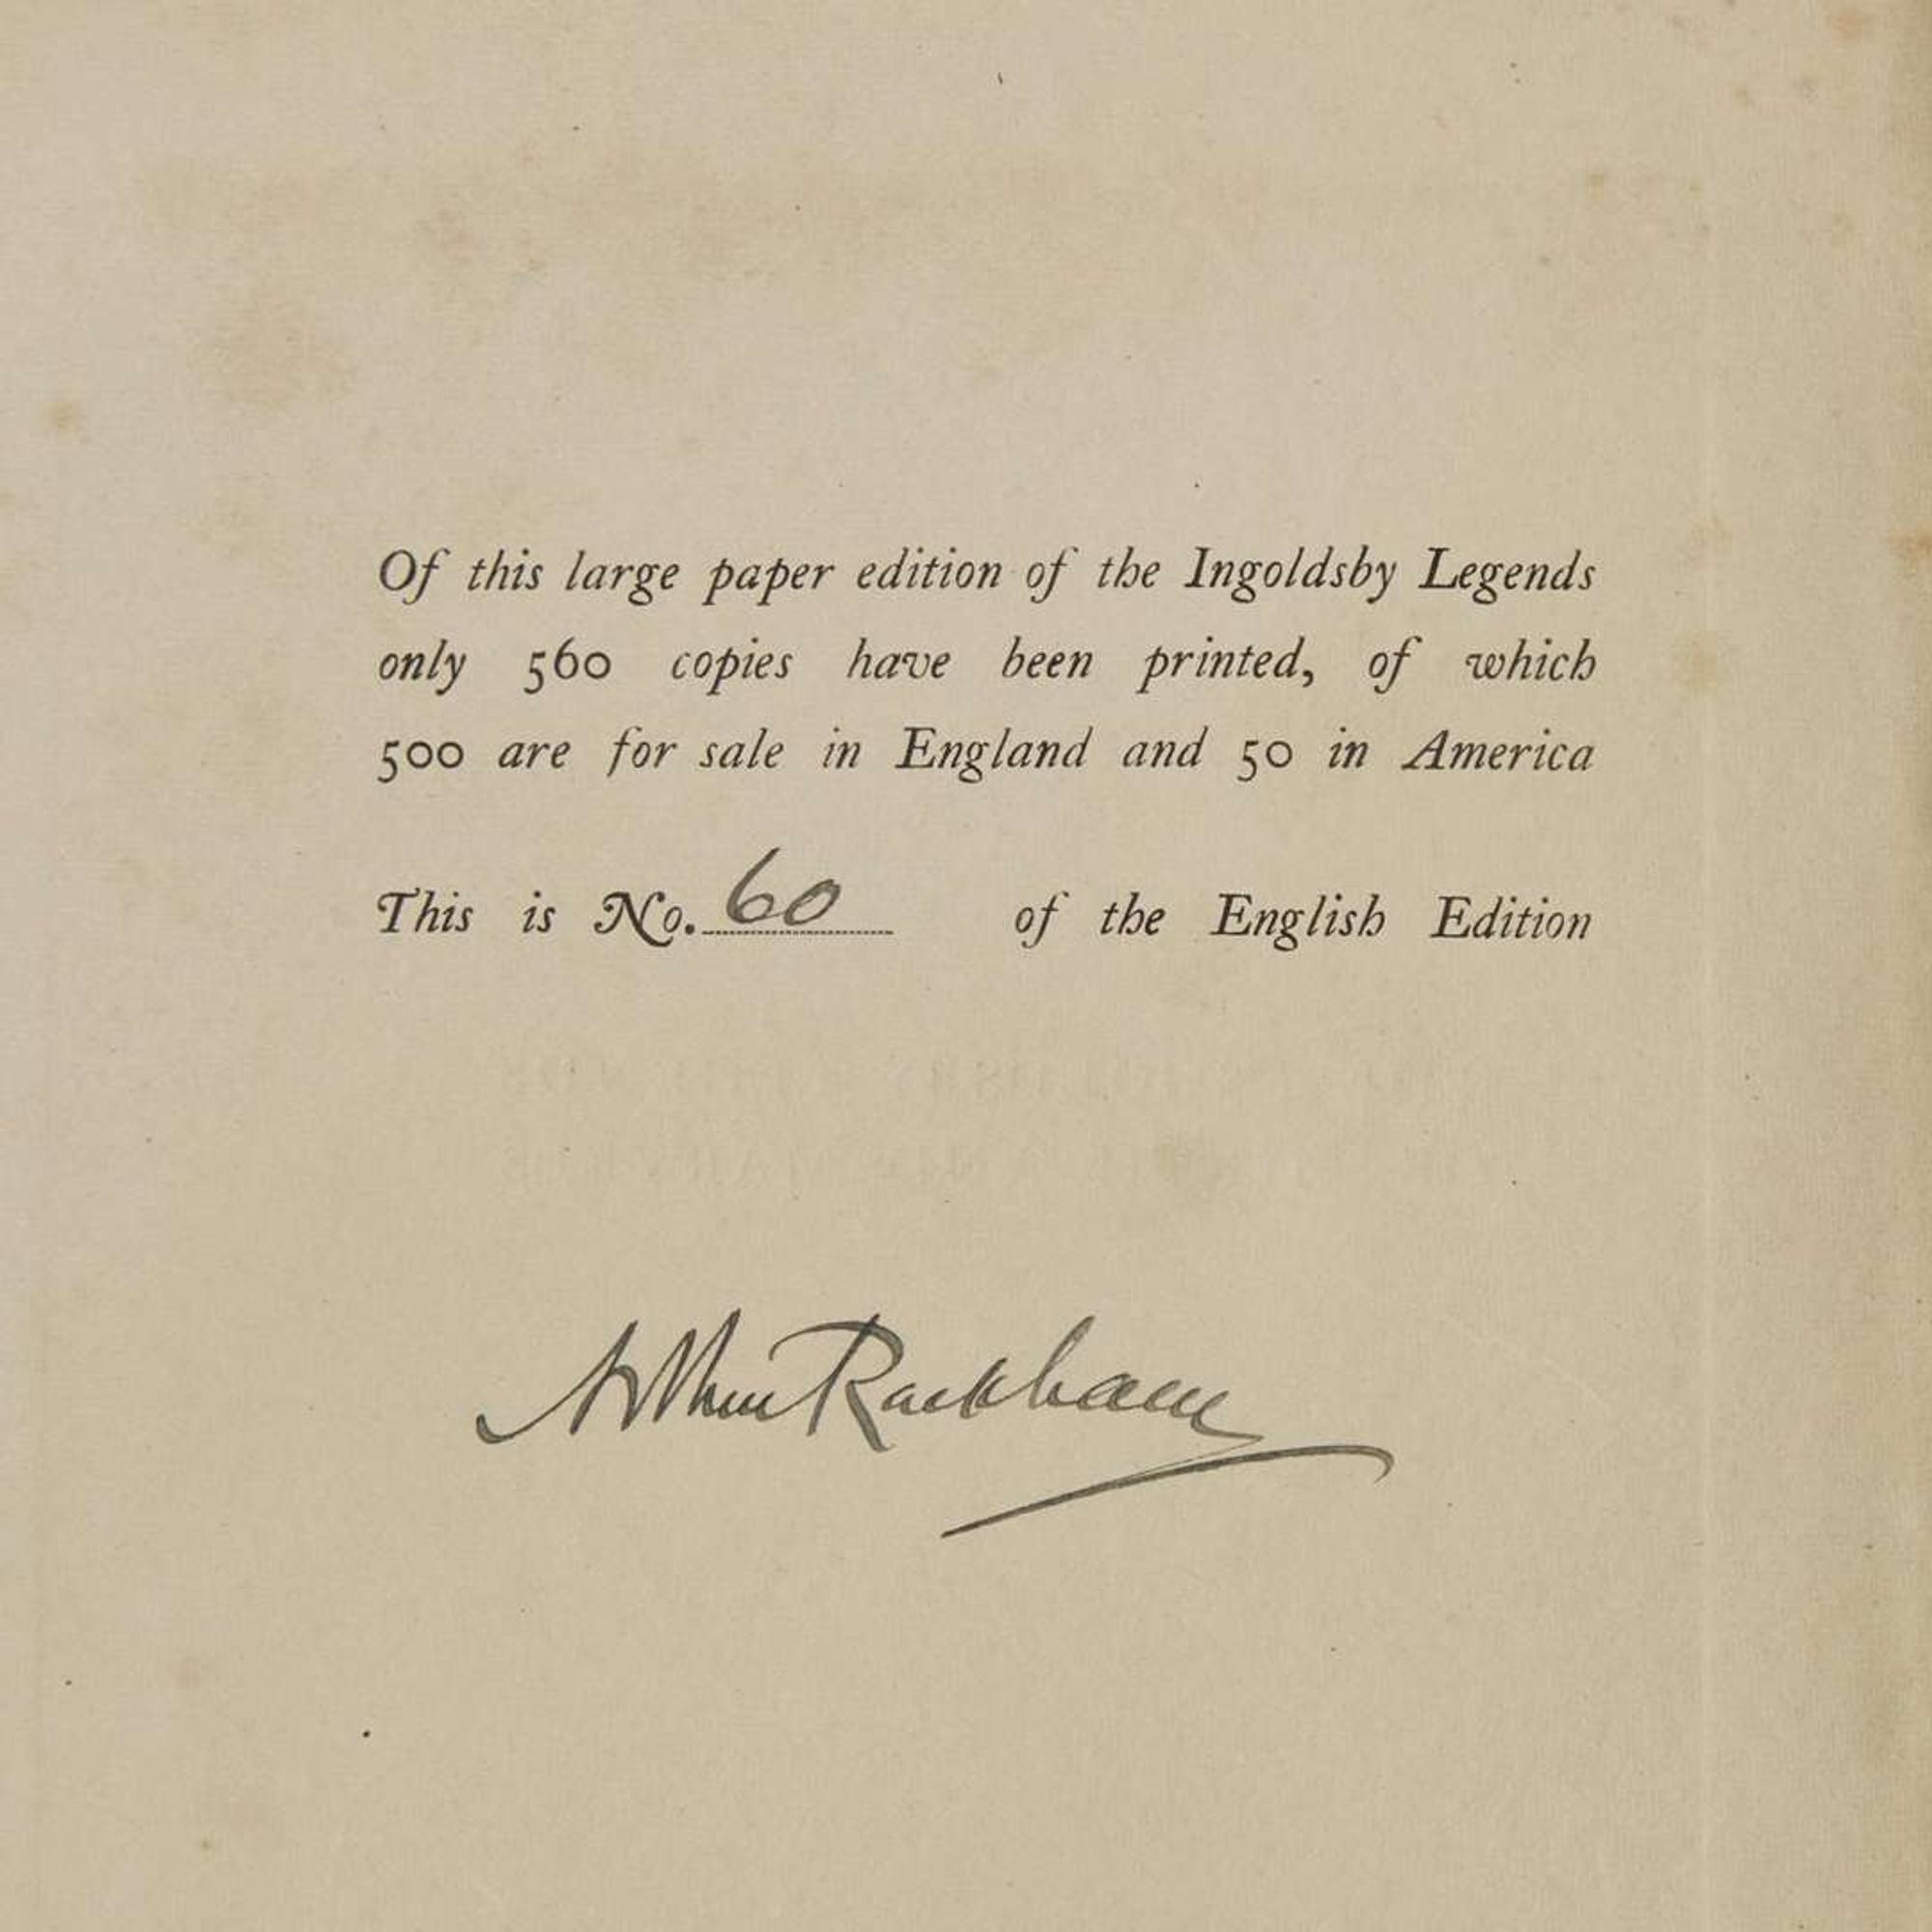 Of this large paper edition of the Ingoldsby Legends
only 560 copies have been printed, of which
500 are for sale in England and 50 in America
This is No. 60 of the English Edition
Arthur Rackham